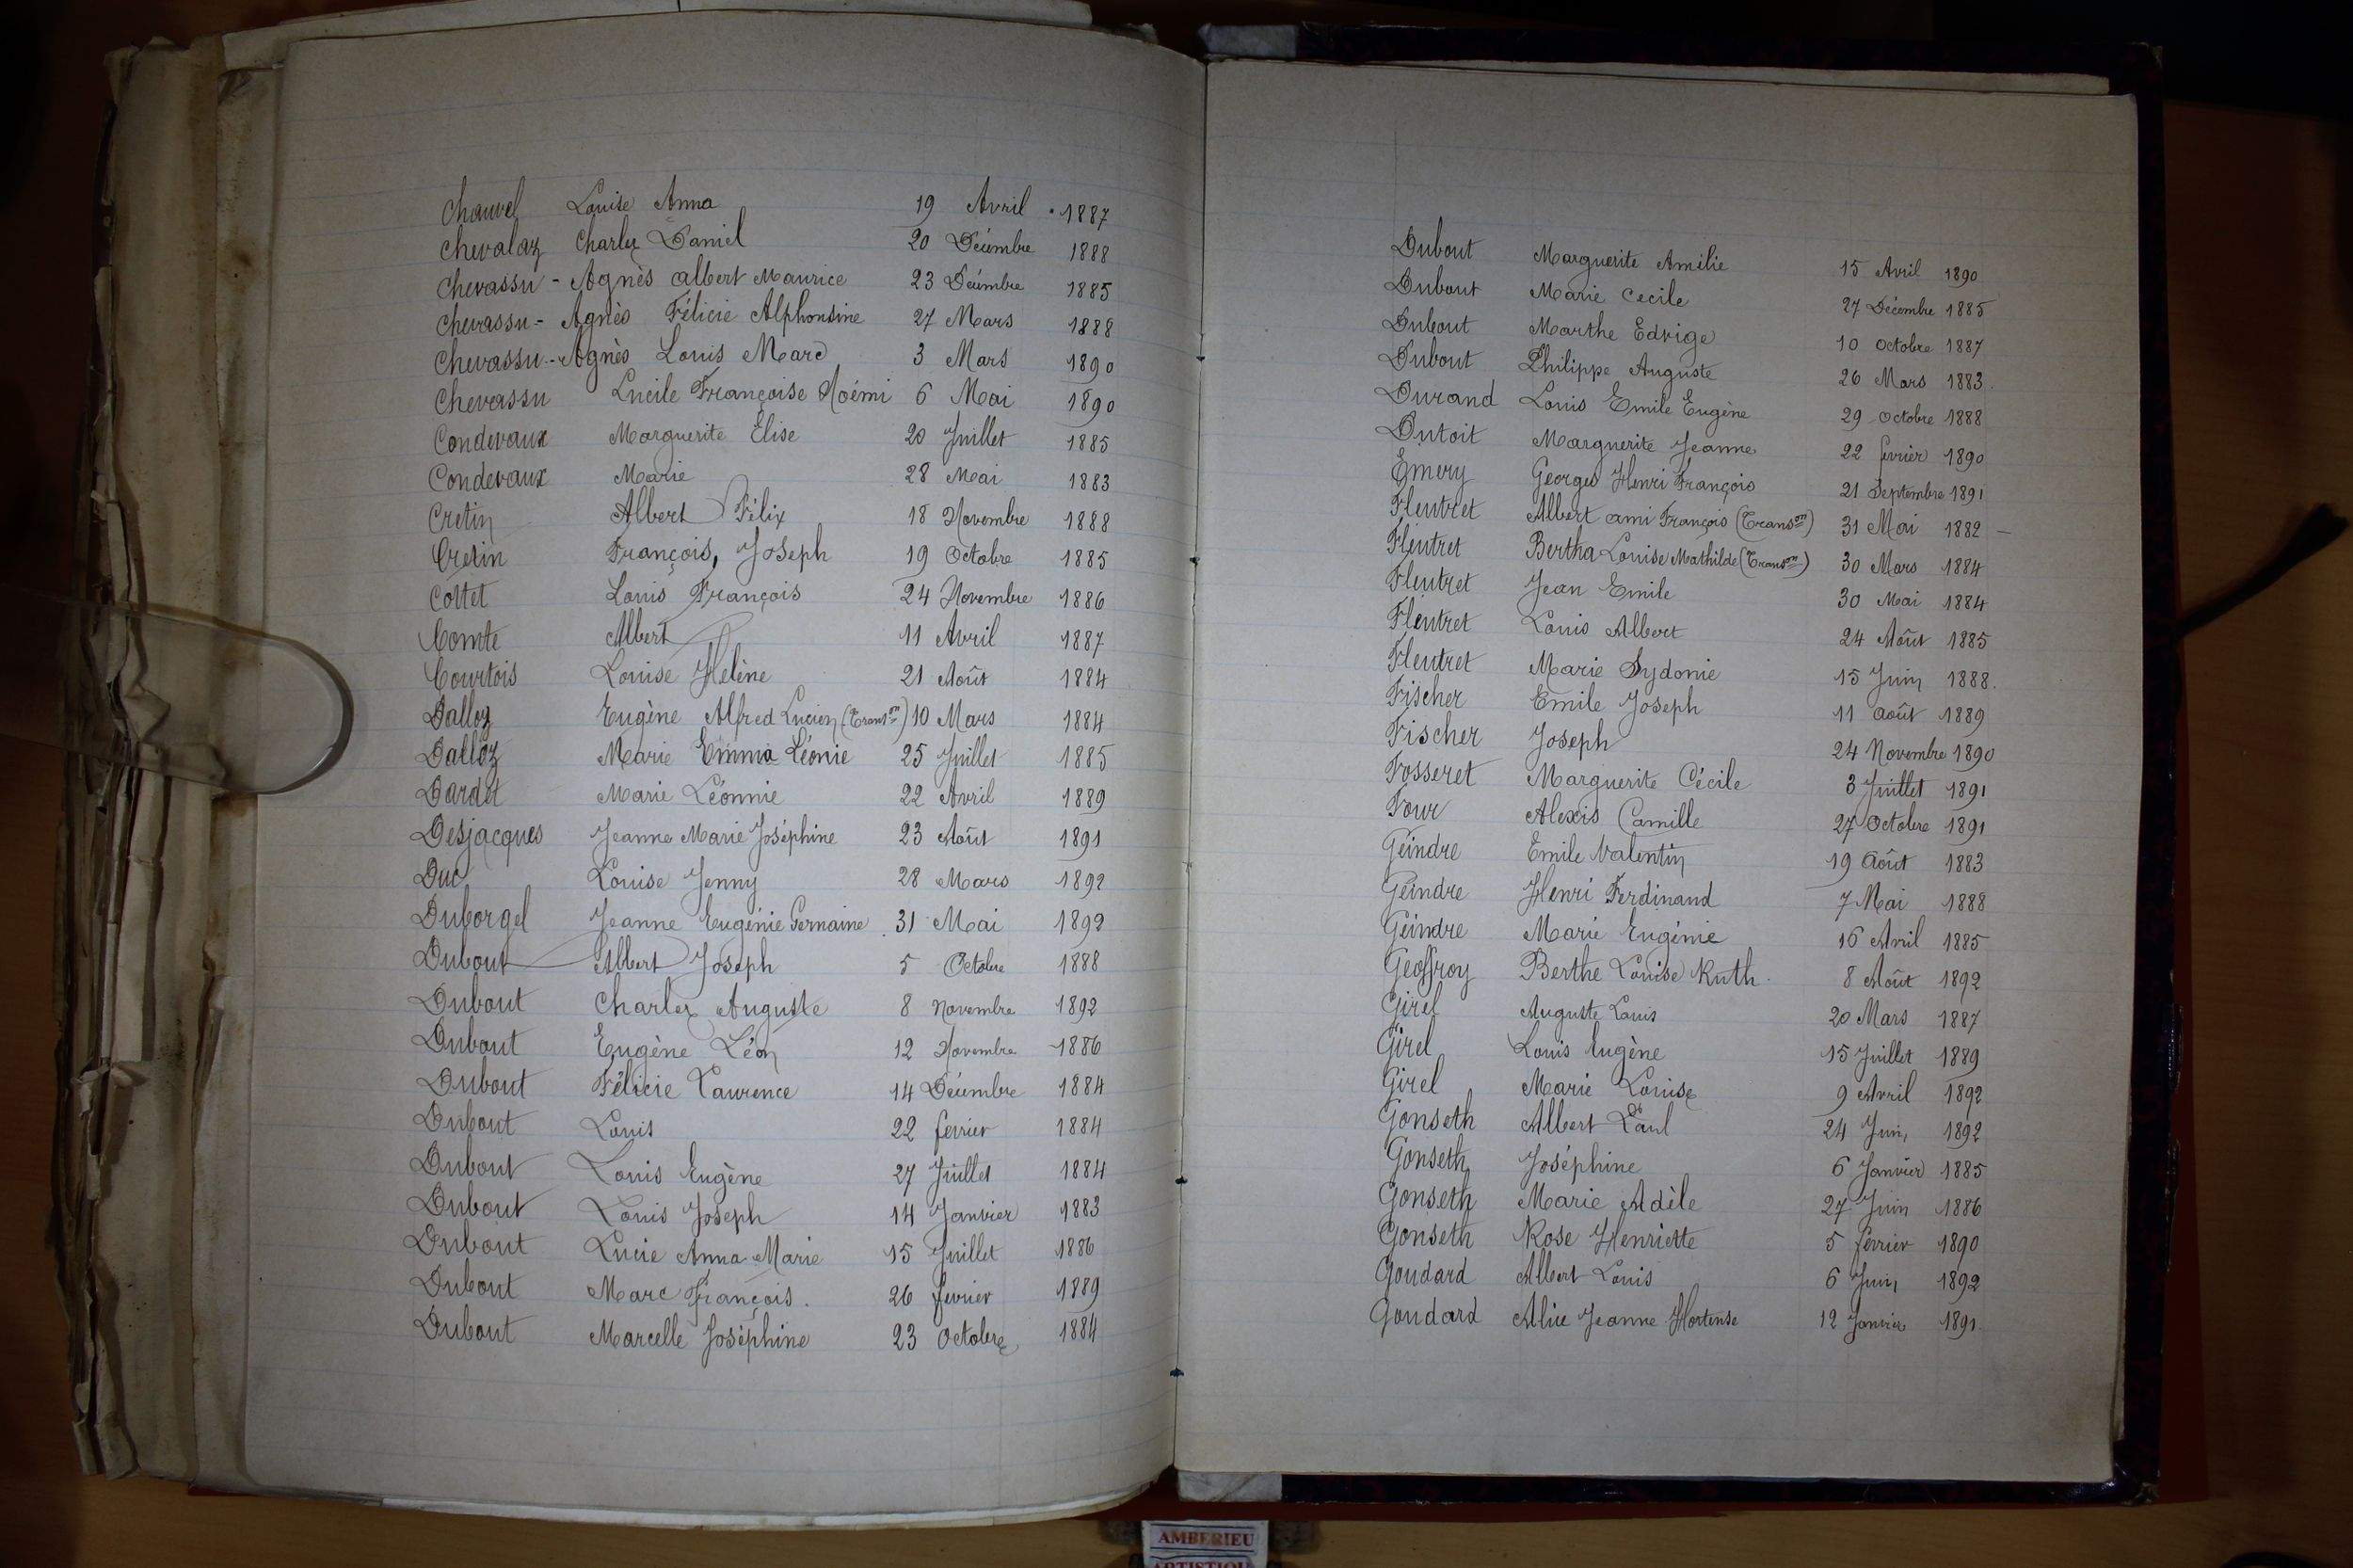 Chauvel Louise Anna 19 Avril 1887
Chevalaz Charles Daniel 20 Décembre 1888
Chevassu - Agnès Albert Maurice 23 Décembre 1885
Chevassu - Agnès Félicie Alphonsine 27 Mars 1888
Chevassu - Agnès Louis Marc 3 Mars 1890
Chevassu Lucile Françoise Noémi 6 Mai 1890
Condevaux Marguerite Elise 20 Juillet 1885
Condevaux Marie 28 Mai 1883
Cretin Albert Félix 18 Novembre 1888
Cretin François, Joseph 19 Octobre 1885
Cottet Louis François 24 Novembre 1886
Comte Albert 11 Avril 1887
Courtois Louise Hélène 21 Août 1884
Dalloz Eugène Alfred Lucien (Transon) 10 Mars 1884
Dalloz Marie Emma Léonie 25 Juillet 1885
Dardet Marie Léonnie 22 Avril 1889
Desjacques Jeanne Marie Joséphine 23 Août 1891
Duc Louise Jenny 28 Mars 1892
Duborgel Jeanne Eugénie Germaine 31 Mai 1892
Dubout Albert Joseph 5 Octobre 1888
Dubout Charles Auguste 8 Novembre 1892
Dubout Eugène Léon 12 Novembre 1886
Dubout Félicie Laurence 14 Décembre 1884
Dubout Louis 22 février 1884
Dubout Louis Eugène 27 Juillet 1884
Dubout Louis Joseph 14 Janvier 1883
Dubout Lucie Anna Marie 15 Juillet 1886
Dubout Marc François. 26 février 1889
Dubout Marcelle Joséphine 23 Octobre 1884
Dubout Marguerite Amélie 15 Avril 1890
Dubout Marie Cecile 27 Décembre 1885
Dubout Marthe Edvige 10 Octobre 1887
Dubout Philippe Auguste 26 Mars 1883.
Durand Louis Emile Eugène 29 Octobre 1888
Dutoit Marguerite Jeanne 22 février 1890
Emery Georges Henri François 21 Septembre 1891
Fleutret Albert ami François (Transon) 31 Mai 1882 -
Fleutret Bertha Louise Mathilde (Transon) 30 Mars 1884
Fleutret Jean Emile 30 Mai 1884
Fleutret Louis Albert 24 Août 1885
Fleutret Marie Sydonie 15 Juin 1888.
Fischer Emile Joseph 11 août 1889
Fischer Joseph 24 Novembre 1890
Fosseret Marguerite Cécile 3 Juillet 1891
Four Alexis Camille 27 Octobre 1891
Geindre Emile Valentin 19 Août 1883
Geindre Henri Ferdinand 7 Mai 1888
Geindre Marie Eugénie 16 Avril 1885
Geoffroy Berthe Louise Ruth. 8 Août 1892
Girel Auguste Louis 20 Mars 1887
Girel Louis Eugène 15 Juillet 1889
Girel Marie Louise 9 Avril 1892
Gonseth Albert Paul 24 Juin 1892
Gonseth Joséphine 6 Janvier 1885
Gonseth Marie Adèle 27 Juin 1886
Gonseth Rose Henriette 5 février 1890
Goudard Albert Louis 6 Juin 1892
Goudard Alice Jeanne Hortense 12 Janvier 1891.
AMBERIEU